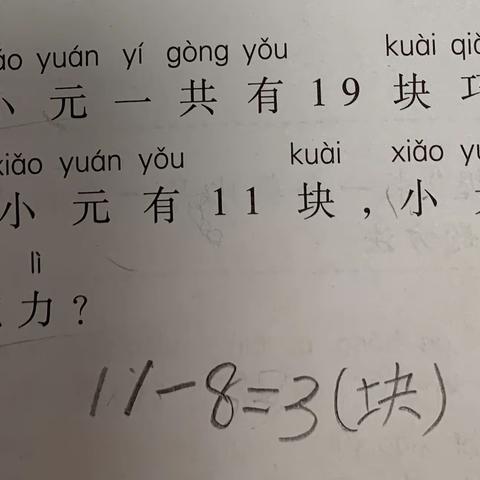 yuán yí gòng yǒu kuài
小元一共有19块
xiǎo yuán yǒu kuài xiǎo
小元有11块,小
lì
力?
11-8=3(块)